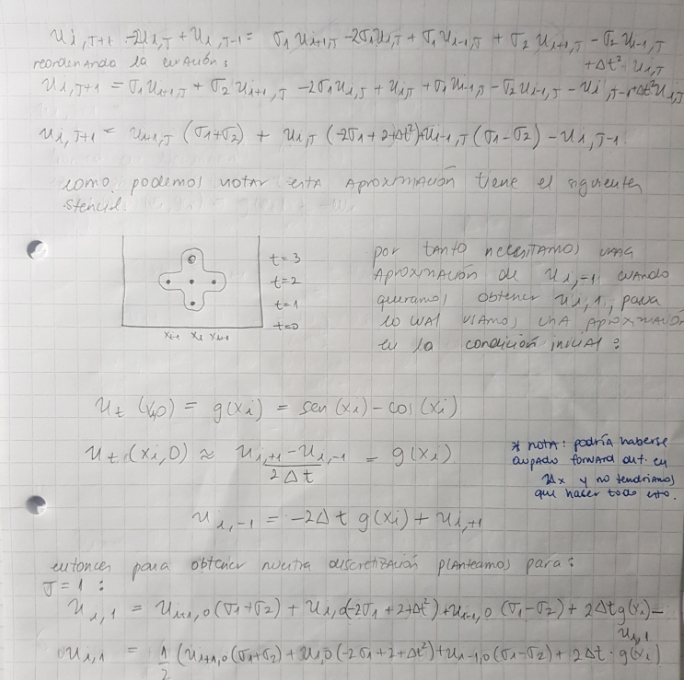 u i,J+1 - 2u i,J + u i,J-1 = σ1 u i+1,J - 2σ1 u i,J + σ1 u i-1,J + σ2 u i+1,J - σ2 u i-1,J
+ Δt² u i,J
reordenando la ecuación:
u i,J+1 = σ1 u i+1,J + σ2 u i+1,J - 2σ1 u i,J + u i,J + σ1 u i-1,J - σ2 u i-1,J - u i,J-1 Δt² u i,J
u i,J+1 = u i+1,J (σ1+σ2) + u i,J (-2σ1+2+Δt²) + u i-1,J (σ1-σ2) - u i,J-1
como podemos notar esta aproximación tiene el siguiente
stencil
t=3
t=2
t=1
t=0
xi-1 xi xi+1
por tanto necesitamos una
aproximación de u i,-1 cuando
queramos obtener u i,1, para
lo cual usamos una aproximación
en la condición inicial:
ut (xi,0) = g(xi) = sen(xi) - cos(xi)
ut (xi,0) ≈ (u i,+1 - u i,-1) / 2Δt = g(xi)
* nota: podría haberse
ocupado forward dif. en
ux y no tendríamos
que hacer todo esto.
u i,-1 = -2Δt g(xi) + u i,+1
entonces para obtener nuestra discretización planteamos para:
J=1:
u i,1 = u i+1,0 (σ1+σ2) + u i,0 (-2σ1+2+Δt²) + u i-1,0 (σ1-σ2) + 2Δt g(xi) -
u i,1
u i,1 = 1/2 (u i+1,0 (σ1+σ2) + u i,0 (-2σ1+2+Δt²) + u i-1,0 (σ1-σ2) + 2Δt · g(xi)